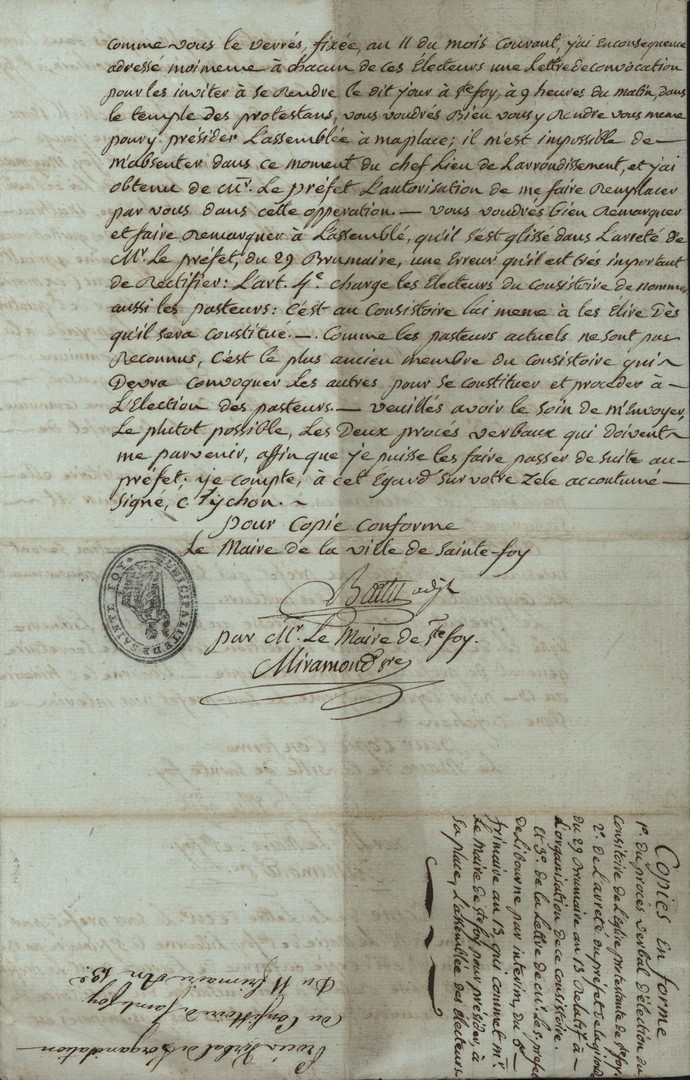 comme vous le verrés, fixée, au 11 du mois courant, j'ai en consequence
adressé moi meme à chacun de ces Electeurs une Lettre de convocation
pour les inviter à se rendre le dit jour à Ste foy, à 9 heures du matin, dans
le temple des protestans, vous voudrés Bien vous y rendre vous meme
pour y présider L'assemblée à ma place; il m'est impossible de —
m'absenter dans ce moment du chef Lieu de L'arrondissement, et j'ai
obtenu de Mr. Le préfet L'autorisation de me faire remplacer
par vous dans cette opperation. — vous voudrés bien remarquer
et faire remarquer à L'assemblé, qu'il s'est glissé dans L'arreté de
Mr. Le préfet, du 29 Brumaire, une Erreur qu'il est très important
de Rectifier: L'art. 4e. charge les Electeurs du consistoire de nommer
aussi les pasteurs: c'est au Consistoire lui meme à les Elire Dès
qu'il sera constitué. —. Comme les pasteurs actuels ne sont pas
Reconnus, c'est le plus ancien membre du consistoire qui
Devra convoquer les autres pour se constituer et proceder à —
L'Election des pasteurs. — veuillés avoir le soin de m'Envoyer,
Le plutot possible, Les Deux procés verbaux qui doivent
me parvenir, affin que je puisse les faire passer de suite au
préfet. je compte, à cet Egard sur votre zele accoutumé —
signé, C. Tychon. ~
pour Copie Conforme
Le Maire de la ville de Sainte-foy
MUNICIPALITE DE SAINTE FOY
Battut adjt
par Mr. Le Maire de Ste foy.
Miramond sre
Copies en forme
1°. du procès verbal d'élection du
consistoire de L'Eglise protestante de Ste foy.
2°. de L'arreté du préfet de la gironde
du 29 Brumaire an 13 Relatif à —
L'organisation de ce consistoire.
et 3°. de la Lettre de Mr. le s. préfet
de Libourne par interim, du 8
frimaire an 13, qui commet Mr.
Le Maire de Ste foy pour présider, à
sa place, L'assemblée des Electeurs.
Procès Verbal de L'organisation
du Consistoire de Sainte foy
Du 11 frimaire An 13e